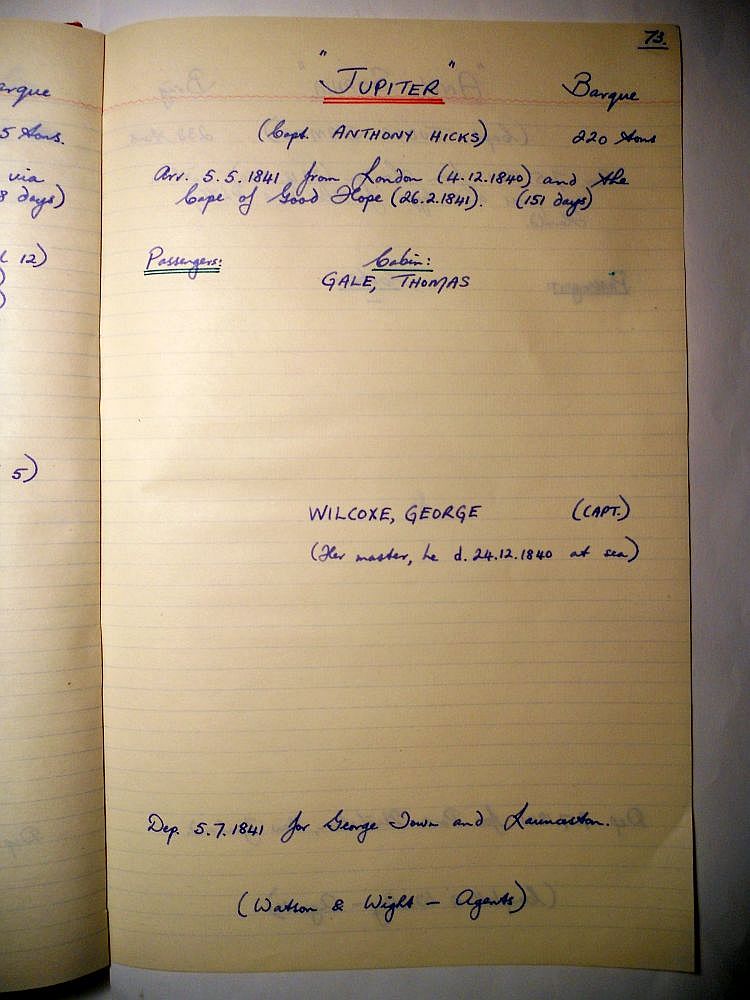 73.
"JUPITER" Barque
(Capt. ANTHONY HICKS) 220 tons
Arr. 5.5.1841 from London (4.12.1840) and the
Cape of Good Hope (26.2.1841). (151 days)
Passengers: Cabin:
GALE, THOMAS
WILCOXE, GEORGE (CAPT.)
(Her master, he d. 24.12.1840 at sea)
Dep. 5.7.1841 for George Town and Launceston.
(Watson & Wight - Agents)
5 tons.
via
days)
12)
5)